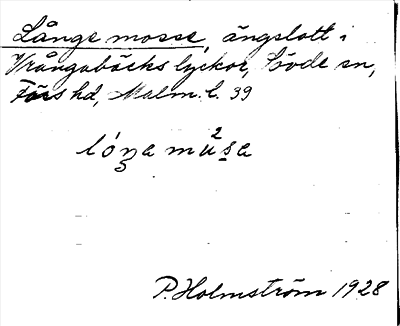 Långe mosse, ängslott i
Vrångabäcks lyckor, Sövde sn,
Färs hd, Malm. l. 39
P. Holmström 1928